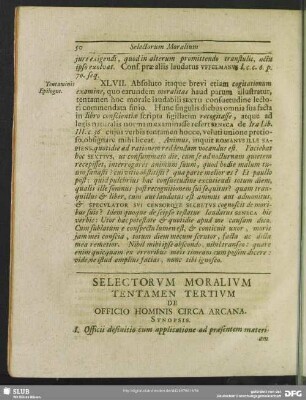 50 Selectorum Moralium
jurresigendi, quod in alterum promittendo transtulit, ullu
ipse revolvet. Conf. præ aliis laudatus l. c. c. 8. p.
70. seq.
Tentaminis
Epilogus.
XLVII. Absoluto itaque brevi etiam cogitationum
examine, quo earundem moralitas haud parum illustratur,
tentamen hoc morale laudabili consuetudine lecto-
ri commendata finio. Hunc singulis diebus omnia sua facta
in libro conscientiæ scripta sigillatim recognitasse, atque ad
legis naturalis normam examinasse refert SENECA de Ira Lib.
III. c. 36. cujus verbis tentamen hocce, voluti unione pretio-
so, obsignare mihi licet. Animus, inquit ROMANUS ILLE SA-
PIENS, quotidie ad rationem reddendam vocandus est. Faciebat
hoc SEXTIUS, ut consummato die, cum se ad nocturnam quietem
recepisset, interrogaret animum suum, quod hodie malum tu-
um sanasti? cui vitio obstitisti? qua parte melior es? Et paullo
post: quid pulchrius hac consuetudine excutiendi totum diem,
qualis ille somnus post recognitionem sui sequitur? quam tran-
quillus & liber, cum aut laudatus est animus aut admonitus,
& SPECULATOR SUI CENSORQUE SECRETUS cognoscit de mori-
bus suis? Idem quoque de seipso testatur laudatus SENECA his
verbis: Utor hac potestate & quotidie apud me causam dico.
Cum sublatum e conspectu lumen est, & conticuit uxor, moris
jam mei conscia, totum diem mecum scrutor, facta ac dicta
mea remetior. Nihil mihi ipse abscondo, nihil transeo: quare
enim quicquam ex erroribus meis timeam cum possim dicere:
vide, ne istud amplius facias, nunc tibi ignosco.
SELECTORVM MORALIVM
TENTAMEN TERTIVM
DE
OFFICIO HOMINIS CIRCA ARCANA.
SYNOPSIS.
I. Officii definitio cum applicatione ad præsentem materi-
am
SLUB